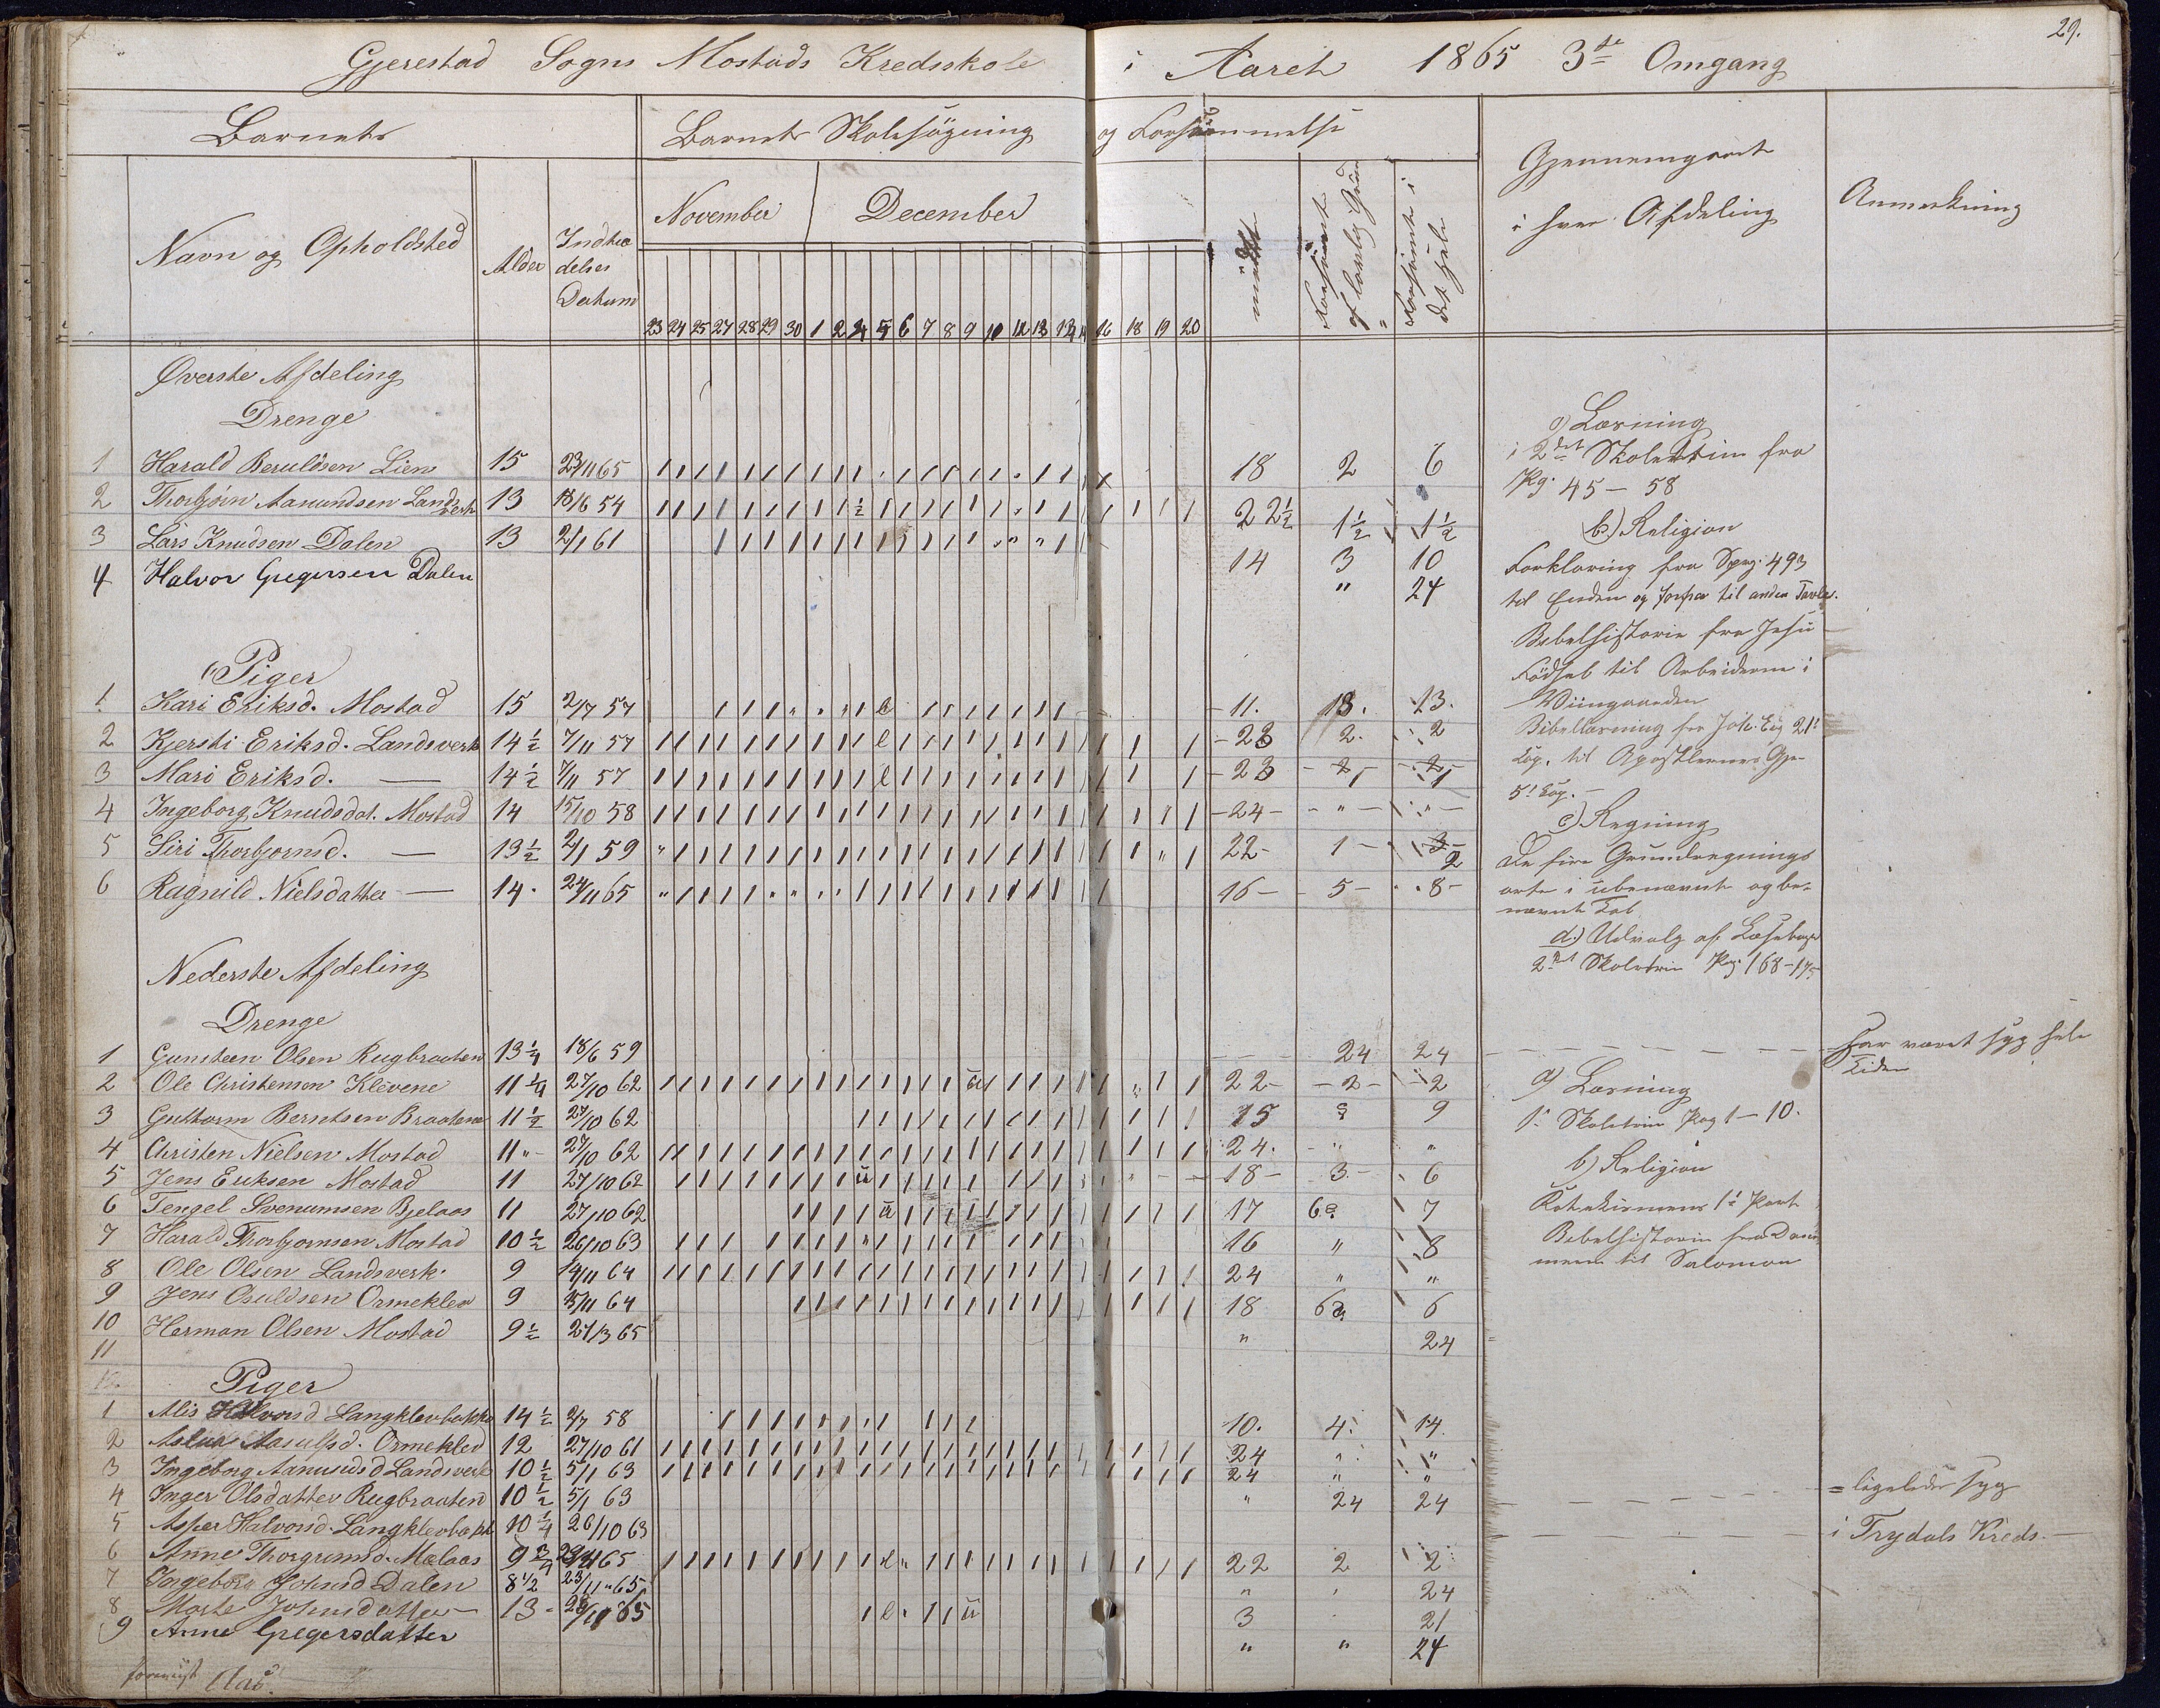 29.
Gjerestad Sogns Mostads Kredsskole i Aaret 1865 3de Omgang
Barnets
Barnets Skolesøgning og Forsømmelse
Gjennemgaaet i hver Afdeling
Anmerkning
Navn og Opholdsted
Alder
Indtrædelses Datum
November
December
mødt
Forsømt af lovlig Grund
Forsømt i det hele
23 24 25 27 28 29 30 1 2 4 5 6 7 8 9 16 18 19 20
Øverste Afdeling
Drenge
1 Harald Beruldsen Lien 15 23/11 65 18 2 6
2 Thorbjörn Aanundsen Landsverk 13 18/6 54 22½ 1½ 1½
3 Lars Knudsen Dalen 13 2/1 61 14 3 10
4 Halvor Gregersen Dalen " 24
Piger
1 Kari Eriksd. Mostad 15 2/7 57 11. 13. 13.
2 Kjersti Eriksd. Landsverk 14½ 7/11 57 23 2. 2
3 Mari Eriksd. — 14½ 7/11 57 23 1 1
4 Ingeborg Knudsdat. Mostad 14 15/10 58 24 " "
5 Siri Thorbjornsd. — 13½ 2/1 59 22 1 2
6 Ragnild Nielsdatter — 14. 24/11 65 16 5 8
Nederste Afdeling
Drenge
1 Gunsteen Olsen Rugbraaten 13¼ 18/6 59 24 24
2 Ole Christensen Klevene 11¼ 27/10 62 22 2 2
3 Guttorm Berntsen Braatene 11½ 27/10 62 15 9
4 Christen Nielsen Mostad 11 " 27/10 62 24. " "
5 Jens Eriksen Mostad 11 27/10 62 18 3 6
6 Tengel Svenumsen Bjelaas 11 27/10 62 17 6 7
7 Harald Thorbjornsen Mostad 10½ 26/10 63 16 " 8
8 Ole Olsen Landsverk 9 14/11 64 24 " "
9 Jens Osuldsen Ormeklev 9 15/11 64 18 6 6
10 Herman Olsen Mostad 9½ 27/3 65 " 24
11
12
Piger
1 Alis Halvorsd Langklevbakke 14½ 2/7 58 10. 4. 14.
2 Aslau Aasulfsd. Ormeklev 12 27/10 61 24 " "
3 Ingeborg Aanundsd Landsverk 10½ 5/1 63 24 " "
4 Inger Olsdatter Rugbraaten 10½ 5/1 63 " 24 24
5 Asper Halvorsd. Langklevbakk 10¼ 26/10 63
6 Anne Thorgrimsd. Mælaas 9¾ 65 22 2 2
7 Ingeborg Johnsd Dalen 8½ 23/11 65 " 24
8 Marte Johnsdatter — 13 65 3 21
9 Anne Gregersdatter " " 24
a) Læsning
i 2det Skoletrin fra
Pg. 45 - 58
b.) Religion
Forklaring fra Spg. 493
til Enden og forfra til anden Tavle.
Bibelhistorie fra Jesu
Fødsel til Arbeiderne i
Viingaarden
Bibellæsning fra Joh. Ev. 21
Cap. til Apostlernes Gje-
5t Cap.
c) Regning
De fire Grundregnings
arter i ubenævnt og be-
nævnt Tal
d.) Udvalg af Læsebogen
2det Skoletrin Pag. 168-175
a) Læsning
1. Skoletrin Pag 1 - 10.
b) Religion
Katekismens 1t Part
Bibelhistorie fra Dom-
merne til Salomon
har været syg hele
Tiden
= ligeledes syg
i Trydals Kreds.